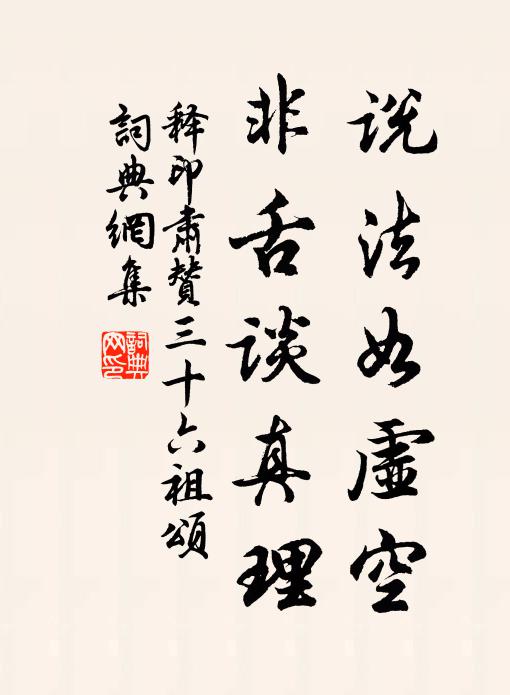 说法如虚空
非舌谈真理
释印肃赞三十六祖颂
词典网集
词典网印